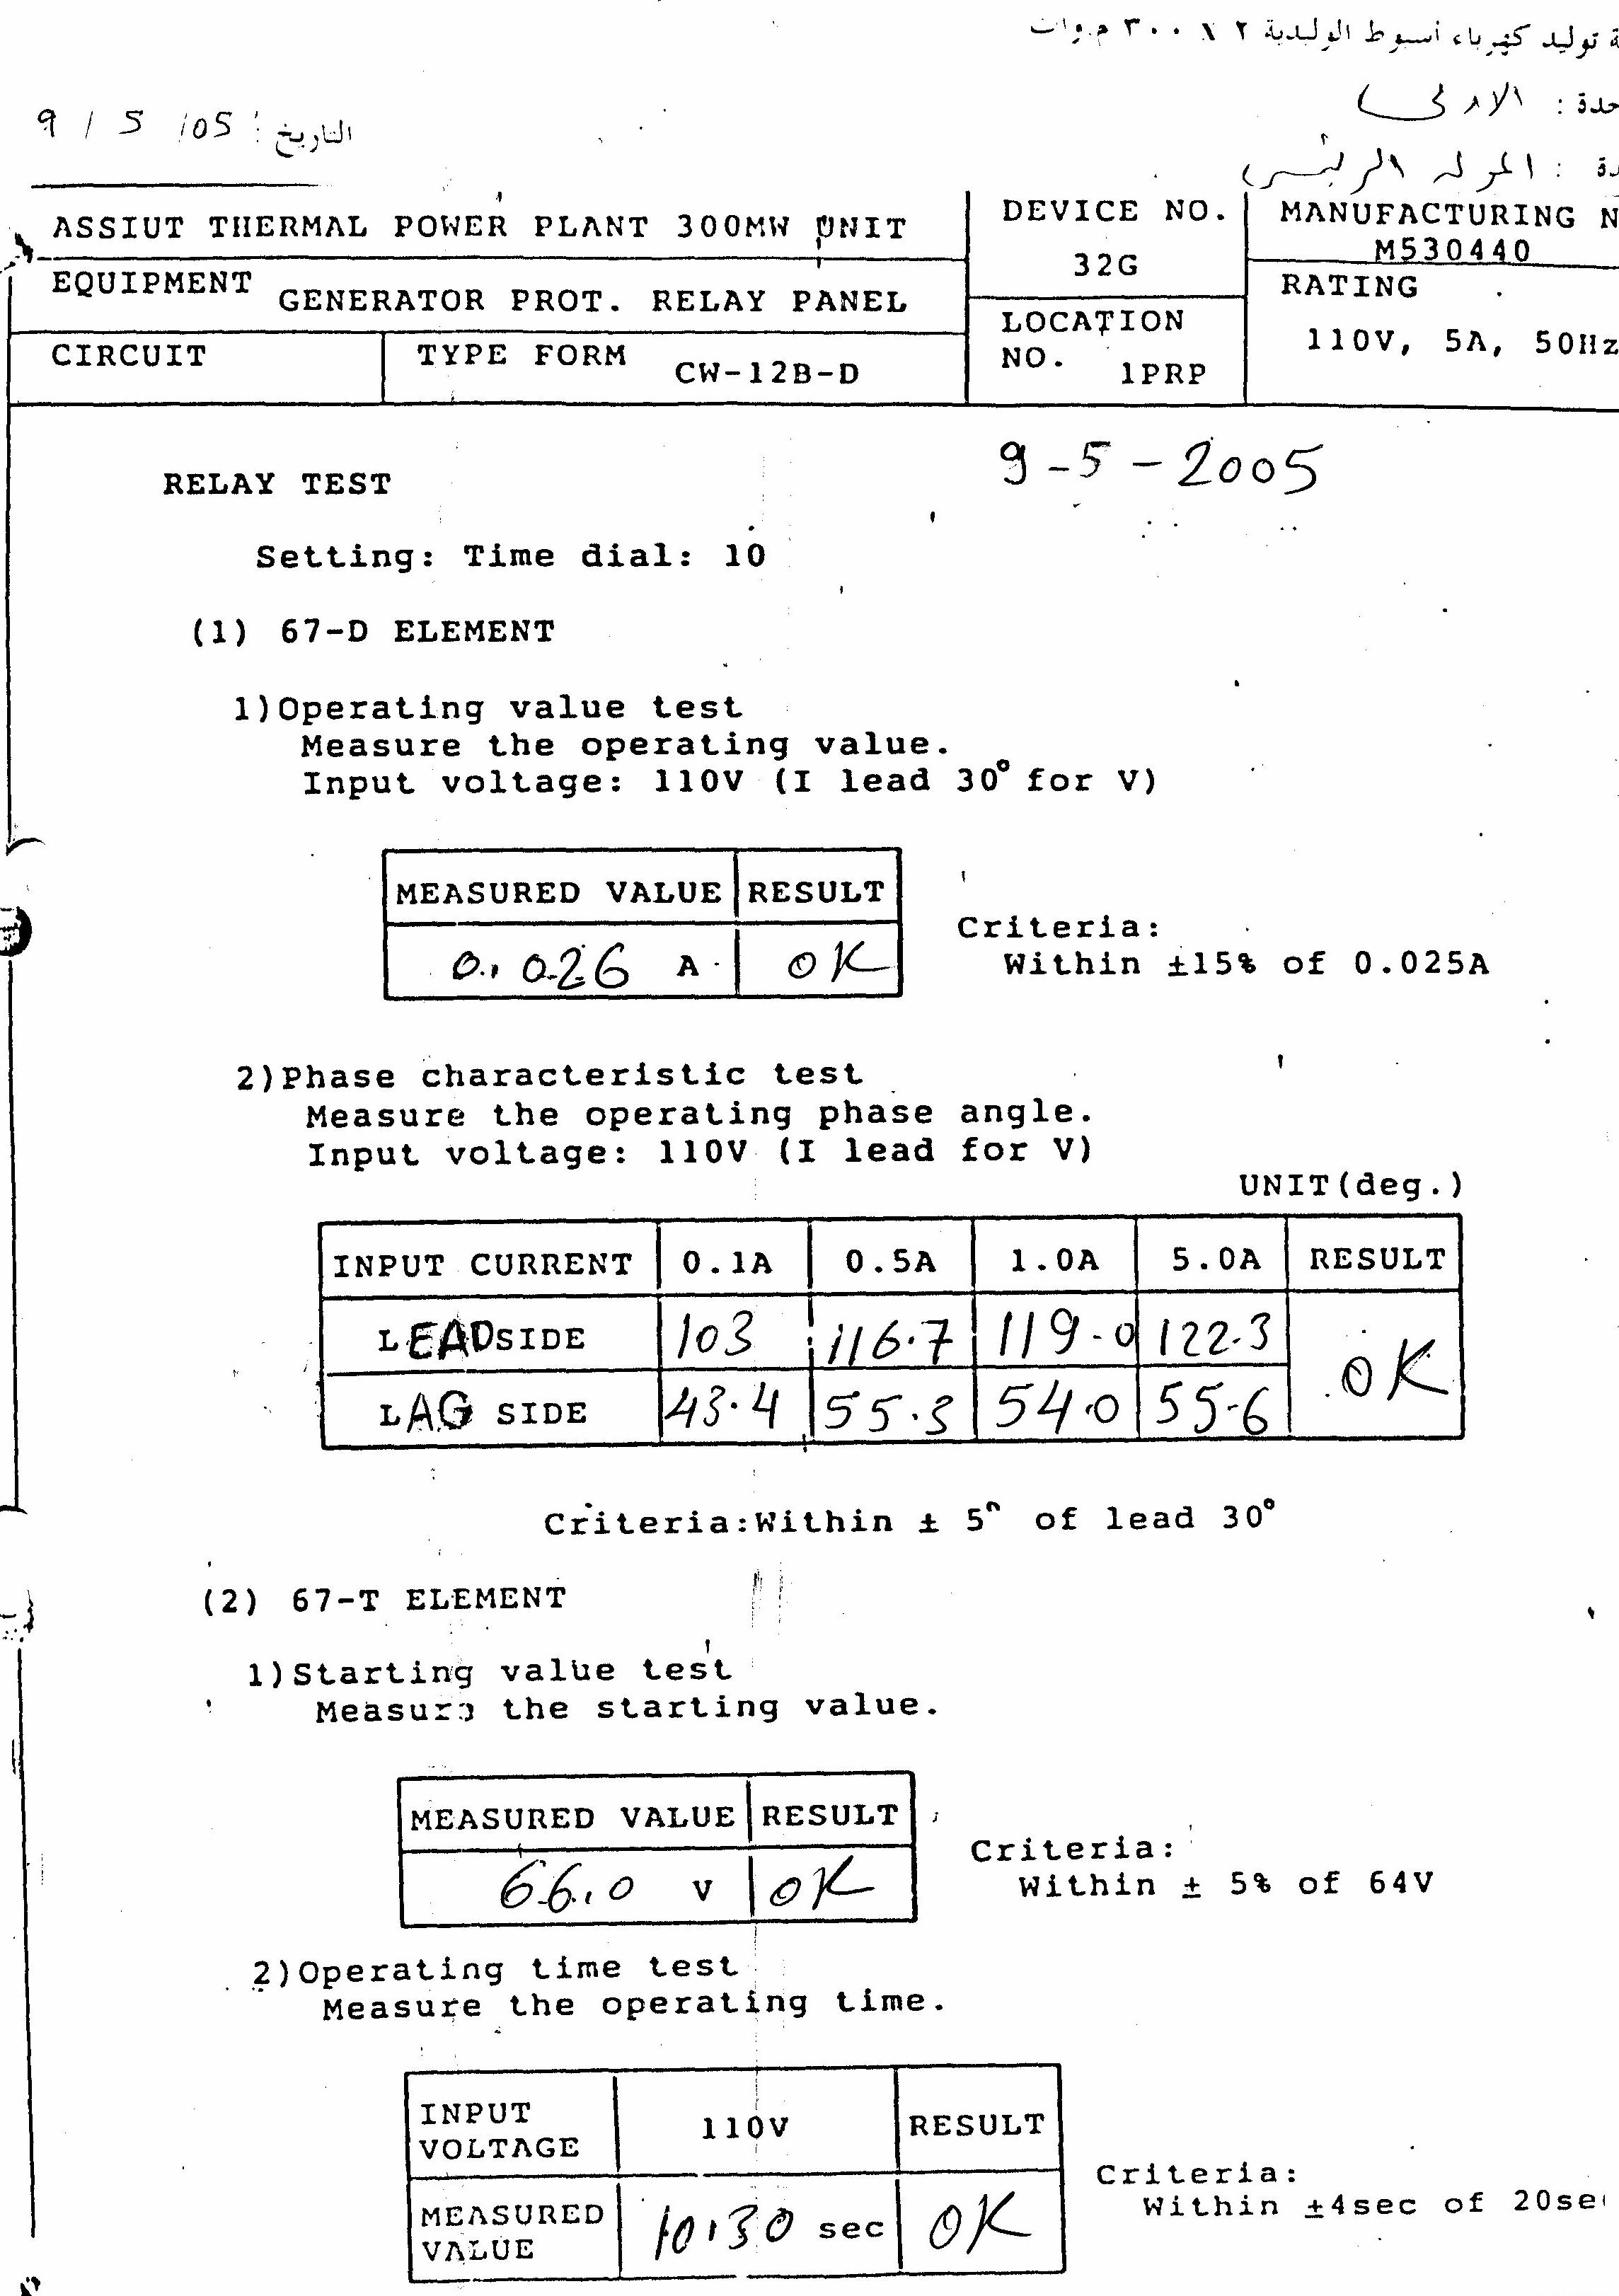 ة توليد كهرباء أسيوط الوليدية ٢ × ٣٠٠ م.وات
حدة : الاولى
التاريخ : 9 / 5 / 05
دة : المولد الرئيسى
ASSIUT THERMAL POWER PLANT 300MW UNIT
DEVICE NO.
32G
MANUFACTURING N
M530440
EQUIPMENT GENERATOR PROT. RELAY PANEL
LOCATION
NO. 1PRP
RATING
110V, 5A, 50Hz
CIRCUIT TYPE FORM CW-12B-D
9-5-2005
RELAY TEST
Setting: Time dial: 10
(1) 67-D ELEMENT
1)Operating value test
Measure the operating value.
Input voltage: 110V (I lead 30° for V)
MEASURED VALUE RESULT
0.026 A OK
Criteria:
Within ±15% of 0.025A
2)Phase characteristic test
Measure the operating phase angle.
Input voltage: 110V (I lead for V)
UNIT(deg.)
INPUT CURRENT 0.1A 0.5A 1.0A 5.0A RESULT
LEAD SIDE 103 116.7 119.0 122.3 OK
LAG SIDE 43.4 55.3 54.0 55.6
Criteria:Within ± 5° of lead 30°
(2) 67-T ELEMENT
1)Starting value test
Measure the starting value.
MEASURED VALUE RESULT
66.0 V OK
Criteria:
Within ± 5% of 64V
2)Operating time test
Measure the operating time.
INPUT VOLTAGE 110V RESULT
MEASURED VALUE 10.30 sec OK
Criteria:
Within ±4sec of 20se